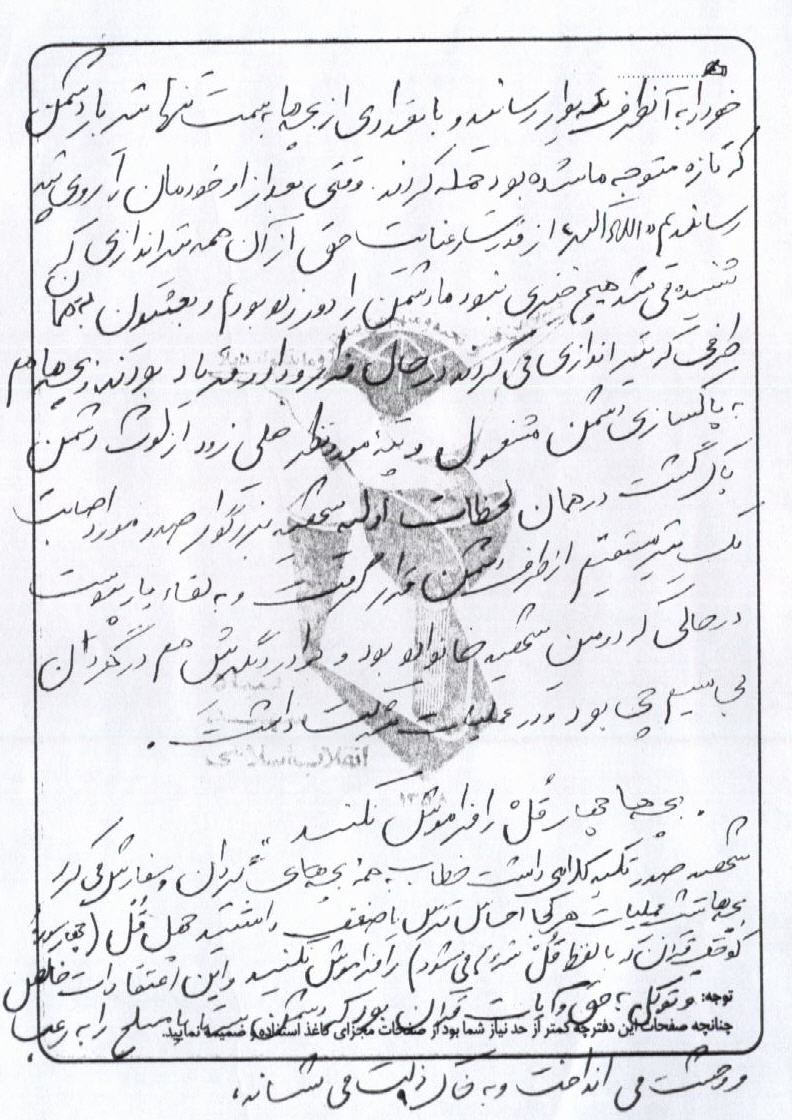 خود را به آنطرف دیوار رسانید و با تعدادی از بچه‌ها به سمت تنها تیربار دشمن
که تازه متوجه ما شده بود حمله کردند. وقتی بعد از او خودمان را روی تپه
رساندیم «الله اکبر» از قدرت و عنایت حق از آن همه تیراندازی که
شنیده می شد هیچ خبری نبود ما دشمن را دور زده بودیم و بعثیون به همان
طرفی که تیراندازی می کردند در حال فرار و داد و فریاد بودند و بچه‌ها هم
به پاکسازی دشمن مشغول و تپه مورد نظر خیلی زود از لوث دشمن
پاک گشت در همان لحظات اولیه شهید بزرگوار صدر مورد اصابت
یک تیر مستقیم از طرف دشمن قرار گرفت و به لقاء یار پیوست
در حالی که دومین شهید خانواده بود و برادر دیگرش هم در گردان
بی سیم چی بود و در عملیات شرکت داشت.
. بچه‌ها چهار قُلْ را فراموش نکنید
شهید صدر تکیه کلامی داشت خطاب به همه بچه‌های گردان و سفارش می کرد
بچه‌ها شب عملیات هر کجا احساس ترس یا ضعف داشتید چهل قُل (چهار سوره
کوچک قرآن که با لفظ قُلْ شروع می شود) را فراموش نکنید و این اعتقادات خالص
و توکل به حق و آیات قرآن بود که دشمن تا مسلح را به رعب
و وحشت می انداخت و به خاک ذلت می نشاند.
توجه:
چنانچه صفحات این دفترچه کمتر از حد نیاز شما بود از صفحات مجزای کاغذ استفاده و ضمیمه نمایید.
انقلاب اسلامی